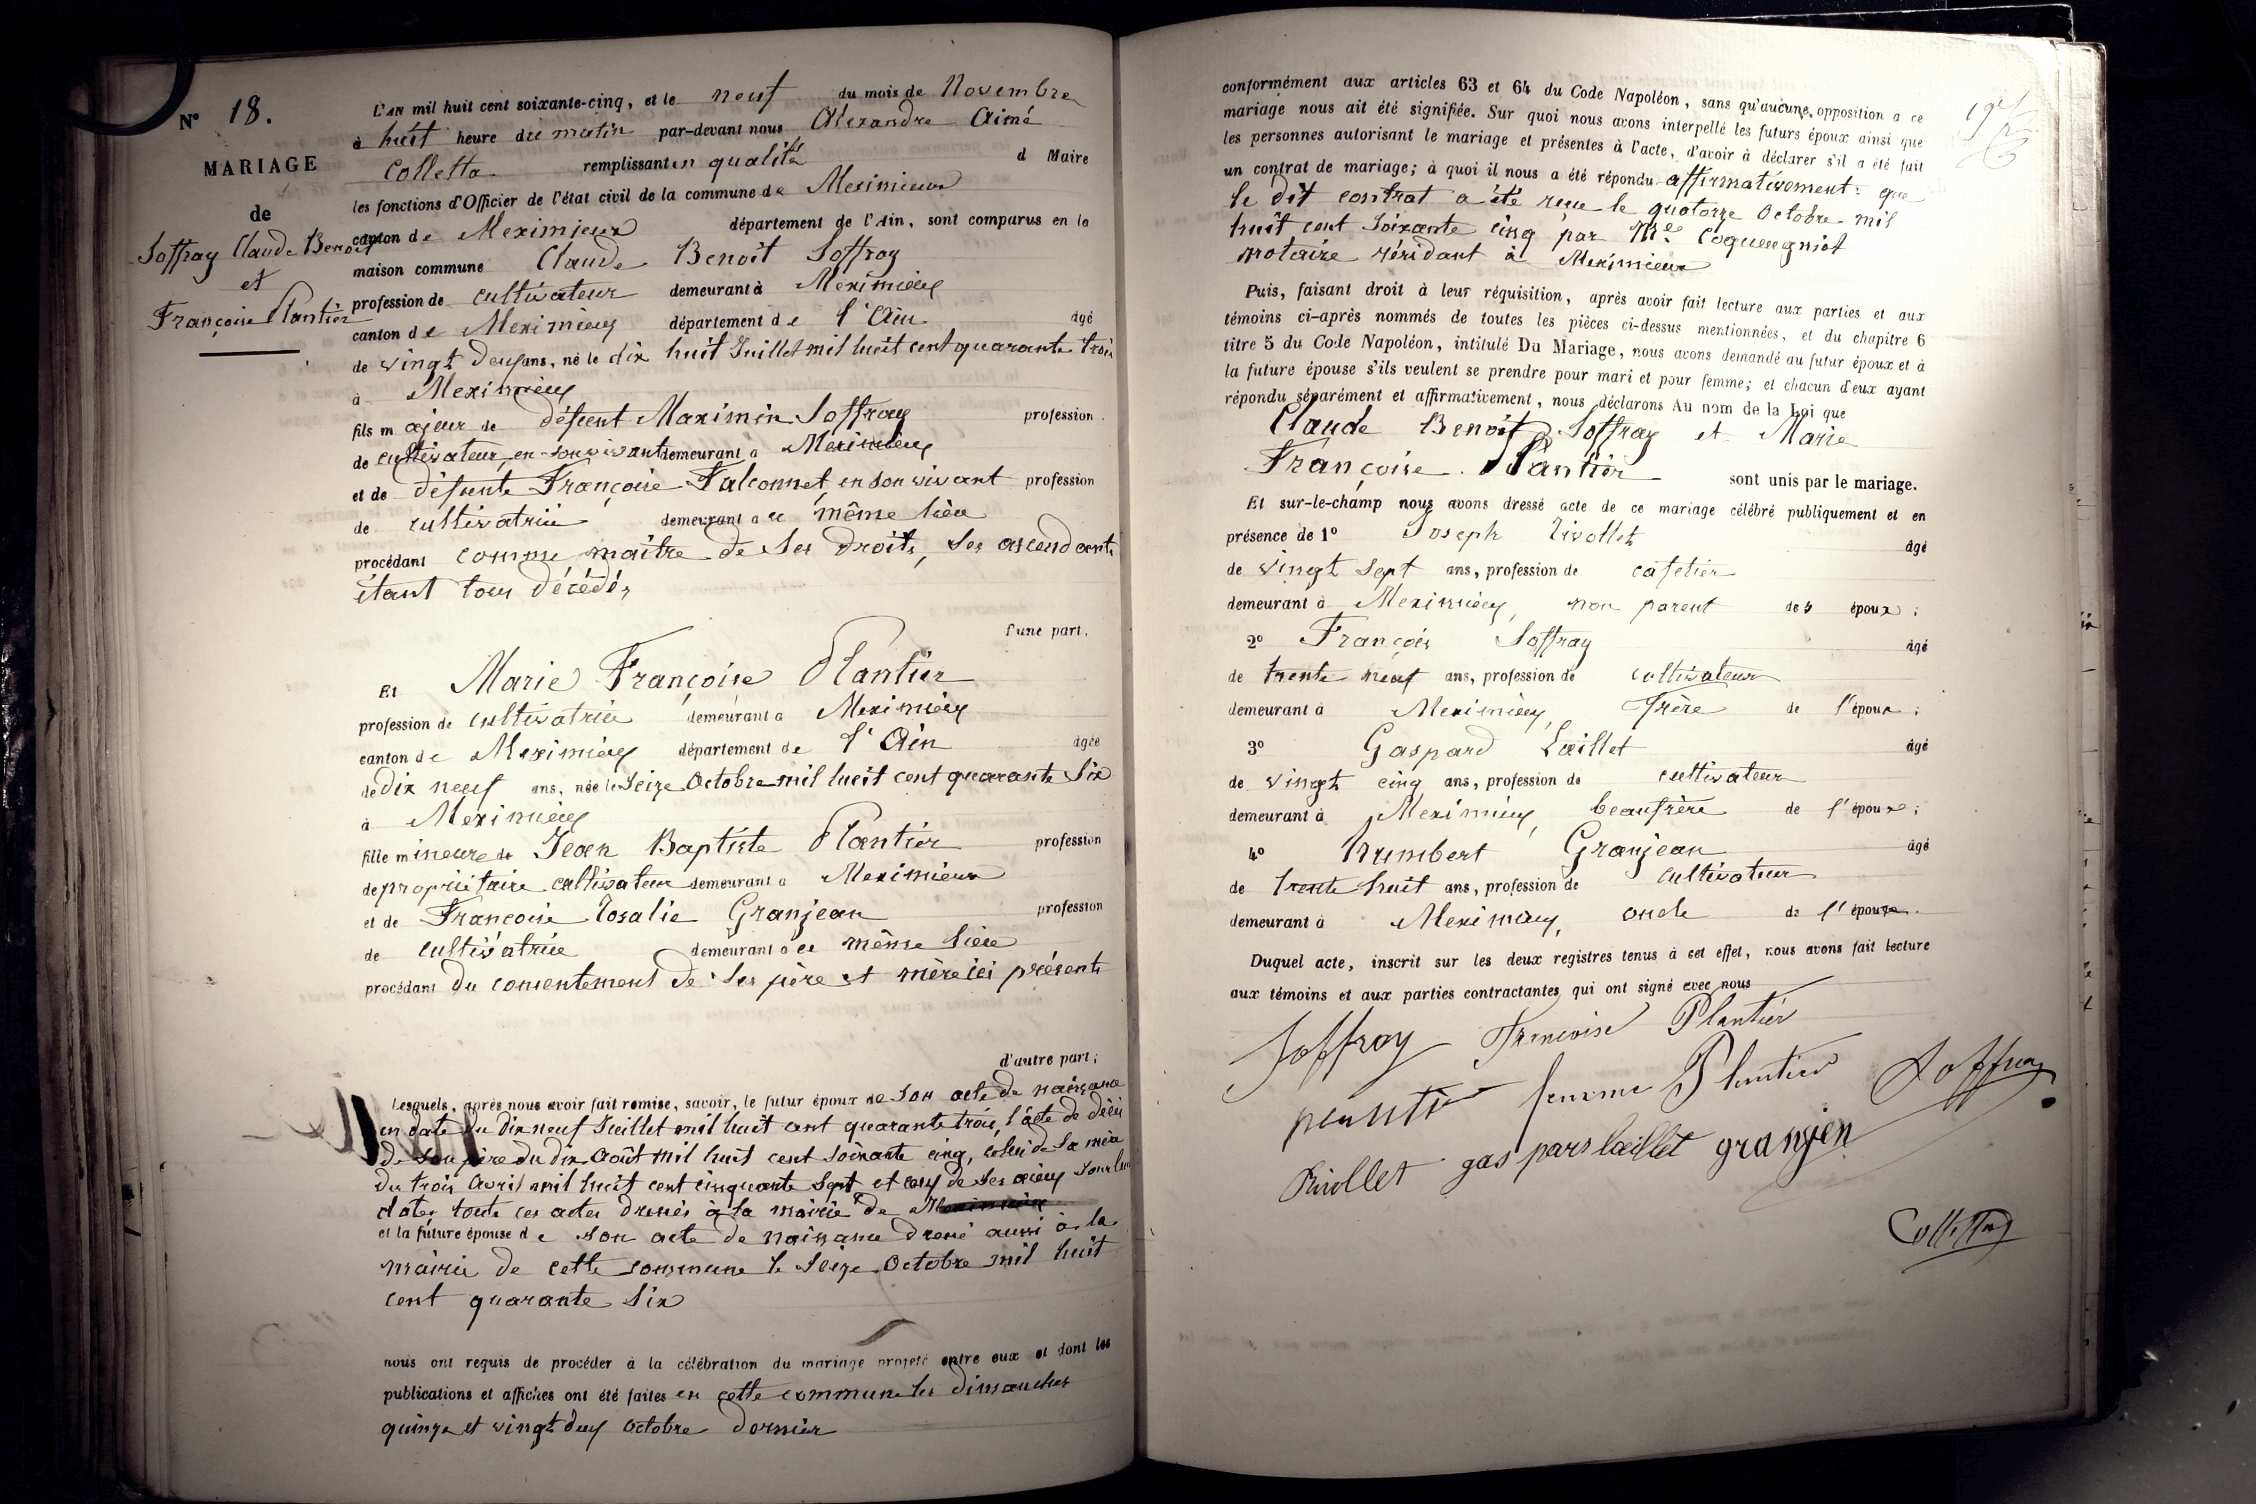 N° 18.
MARIAGE
de
Joffray Claude Benoit
et
Françoise Plantier
L'AN mil huit cent soixante-cinq, et le neuf du mois de Novembre
à huit heure du matin par-devant nous Alexandre Aimé
Collette remplissant en qualité d Maire
les fonctions d'Officier de l'état civil de la commune de Meximieux
canton de Meximieux département de l'Ain, sont comparus en la
maison commune Claude Benoit Joffray
profession de cultivateur demeurant à Meximieux
canton de Meximieux département de l'Ain âgé
de vingt deux ans, né le dix huit Juillet mil huit cent quarante trois
à Meximieux
fils majeur de défunt Maximin Joffray profession
de cultivateur en son vivant demeurant à Meximieux
et de défunte Françoise Falconnet, en son vivant profession
de cultivatrice demeurant à ce même lieu
procédant comme maître de ses droits, ses ascendants
étant tous décédés
d'une part.
Et Marie Françoise Plantier
profession de cultivatrice demeurant à Meximieux
canton de Meximieux département de l'Ain âgée
de dix neuf ans, née le Seize Octobre mil huit cent quarante six
à Meximieux
fille mineure de Jean Baptiste Plantier profession
de propriétaire cultivateur demeurant à Meximieux
et de Françoise Rosalie Granjean profession
de cultivatrice demeurant à ce même lieu
procédant du consentement de ses père et mère ici présents
d'autre part;
Lesquels, après nous avoir fait remise, savoir, le futur époux de son acte de naissance
en date du dix neuf Juillet mil huit cent quarante trois, l'acte de décès
de son père du dix Août mil huit cent soixante cinq, celui de sa mère
du trois Avril mil huit cent cinquante sept et ceux de ses aïeux sous leur
dates toute ces actes dressés à la mairie de Meximieux
et la future épouse de son acte de naissance dressé aussi à la
mairie de cette commune le Seize Octobre mil huit
cent quarante six
nous ont requis de procéder à la célébration du mariage projeté entre eux et dont les
publications et affiches ont été faites en cette commune les dimanches
quinze et vingt deux Octobre dernier
conformément aux articles 63 et 64 du Code Napoléon, sans qu'aucune opposition a ce
mariage nous ait été signifiée. Sur quoi nous avons interpellé les futurs époux ainsi que
les personnes autorisant le mariage et présentes à l'acte, d'avoir à déclarer s'il a été fait
un contrat de mariage; à quoi il nous a été répondu affirmativement: que
le dit contrat a été reçu le quatorze Octobre mil
huit cent soixante cinq par Me Coquengniot
notaire résidant à Meximieux
Puis, faisant droit à leur réquisition, après avoir fait lecture aux parties et aux
témoins ci-après nommés de toutes les pièces ci-dessus mentionnées, et du chapitre 6
titre 5 du Code Napoléon, intitulé Du Mariage, nous avons demandé au futur époux et à
la future épouse s'ils veulent se prendre pour mari et pour femme; et chacun d'eux ayant
répondu séparément et affirmativement, nous déclarons Au nom de la Loi que
Claude Benoit Joffray et Marie
Françoise Plantier sont unis par le mariage.
Et sur-le-champ nous avons dressé acte de ce mariage célébré publiquement et en
présence de 1° Joseph Rivollet âgé
de vingt sept ans, profession de cafetier
demeurant à Meximieux, non parent des époux;
2° François Joffray âgé
de trente neuf ans, profession de cultivateur
demeurant à Meximieux, Frère de l'époux;
3° Gaspard Laillet âgé
de vingt cinq ans, profession de cultivateur
demeurant à Meximieux, beaufrère de l'époux;
4° Humbert Granjean âgé
de trente huit ans, profession de cultivateur
demeurant à Meximieux, oncle de l'épouse.
Duquel acte, inscrit sur les deux registres tenus à cet effet, nous avons fait lecture
aux témoins et aux parties contractantes qui ont signé avec nous
Joffray Francoise Plantier
femme Plantier Joffray
Rivollet gaspars laillet granjen
Collette